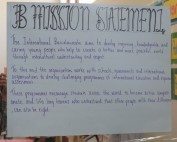 IB MISSION SATEMENT
The International Baccalaureate aims to develop inquiring, knowledgeable and
caring young people who help to create a better and more peaceful world
through intercultural understanding and respect.
To this end the organization works with schools, governments and international
organizations to develop challenging programmes of international education and rigorous
assessment.
These programmes encourage students across the world to become active, compass
ionate, and life long learners who understand that other people with their differences
can also be right.